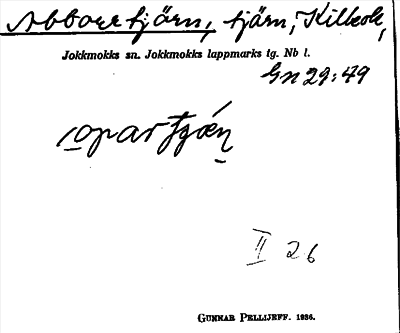 Abborrtjärn, tjärn, Kilbok,
Jokkmokks sn. Jokkmokks lappmarks tg. Nb l.
Gn 29:49
II 26
GUNNAR PELLIJEFF. 1936.